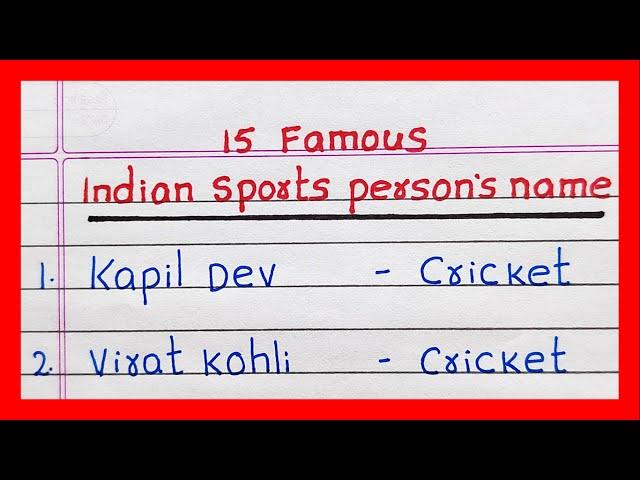 15 Famous
Indian sports person's name
1. Kapil Dev - Cricket
2. Virat Kohli - Cricket